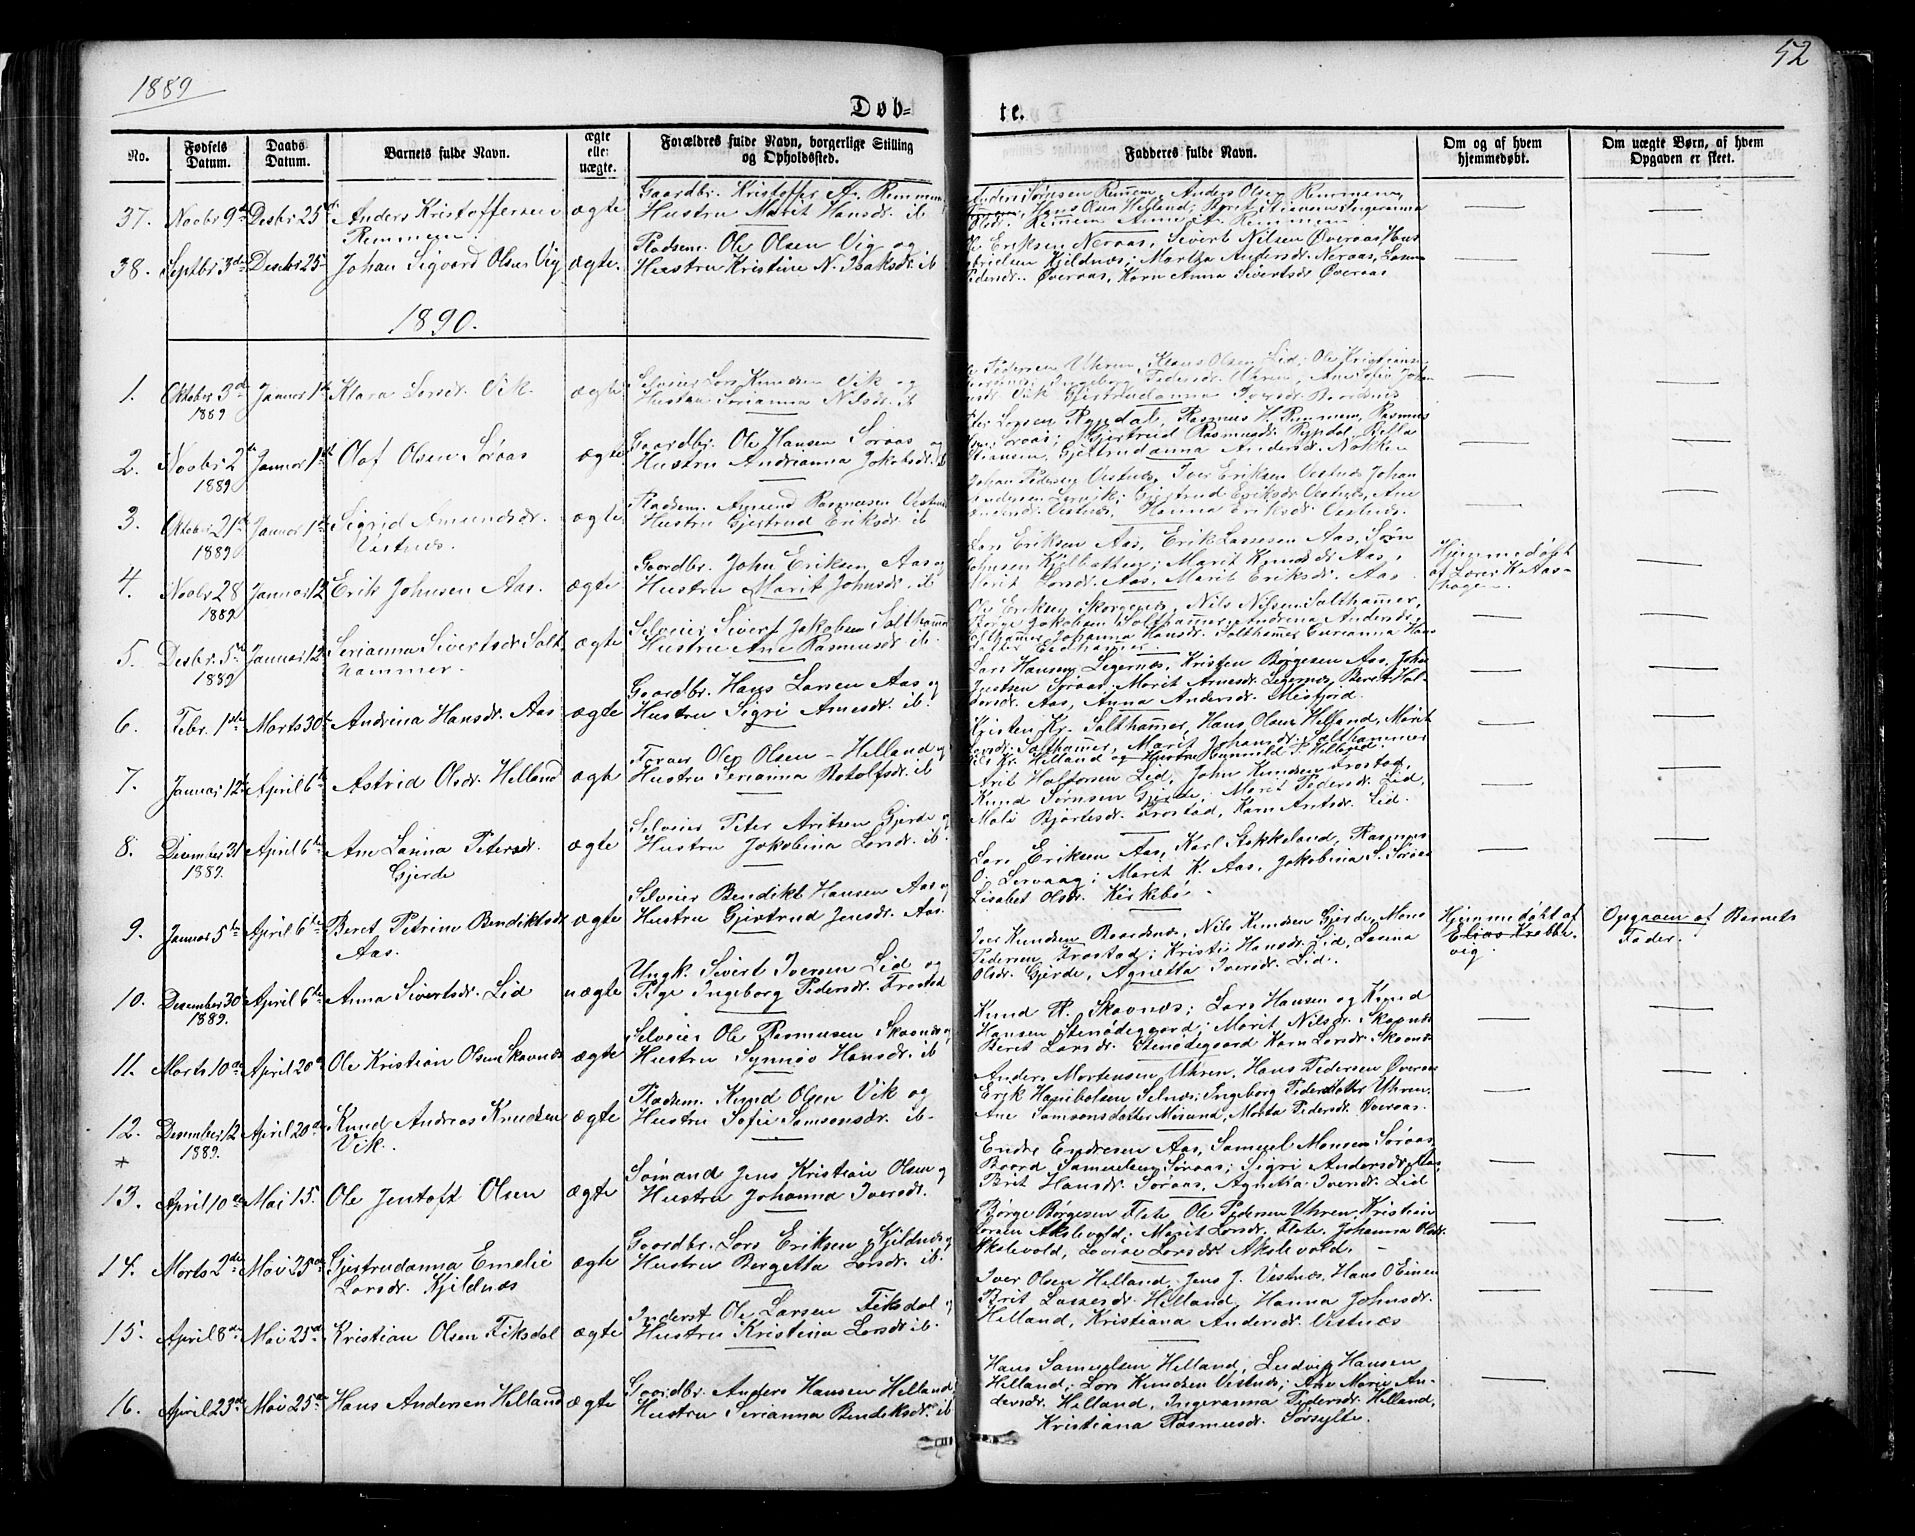 1889
52
Døb-
te.
No.
Fødsels Datum.
Daabs Datum.
Barnets fulde Navn.
ægte eller uægte.
Forældres fulde Navn, borgerlige Stilling og Opholdssted.
Fadderes fulde Navn.
Om og af hvem hjemmedøbt.
Om uægte Børn, af hvem Opgaven er skeet.
37. Novbr 9de Desbr 25de Anders Kristoffersen ægte Gaardbr. Kristoffer A. Remmem
Remmem Hustru Marit Hansdr. ib
Anders Sørnsen Remem, Anders Olsen Remmem,
Hans Olsen Helland; Beret Ingeranna
38. Septbr 3de Desbr 25 Johan Sigvard Olsen Vig ægte Pladsm. Ole Olsen Vig og
Hustru Kristine N. Isaksdr. ib
Eriksen Neraas, Sivert Nilsen Øveraas, Hans
Kjeldnæs; Martha Andersdr. Neraas,
Pedersdr. Øveraas, Karn Anna Sivertsdr Øveraas
1890.
1. Oktober 3de 1889 Januar 1ste Klara Larsdr. Vik. ægte Selveier Lars Knudsen Vik og
Hustru Serianna Nilsdr. ib
Pedersen Uhren, Klaus Olsen Lid, Ole Kristianse
Ingeborg Pedersdr. Uhren,
Vik Gjertrudanna Iversdr.
2. Novbr 2den 1889 Januar 1ste Olaf Olsen Søraas ægte Gaardbr. Ole Hansen Søraas og
Hustru Andrianna Jakobsdr. ib
Larsen Rypdal, Rasmus H. Remmem, Rasmus
Søraas; Gjertrud Rasmusdr. Rypdal,
Gjertrudanna Andersdr.
3. Oktober 21de 1889 Januar 1ste Sigrid Amundsdr. ægte Pladsm. Amund Rasmusen Vestnæs
Vestnæs. Hustru Gjertrud Eriksdr. ib
Johan Pedersen Vestnæs, Iver Eriksen Vestnæs Johan
Andersen Gjertrud Eriksdr. Vestnæs, Ane
Andersdr. Vestnæs, Hanna Eriksdr. Vestnæs.
4. Novbr 28 1889 Januar 12 Erik Johnsen Aas. ægte Gaardbr. John Eriksen Aas og
Hustru Marit Johnsdr. ib
Lars Eriksen Aas, Erik Lassesen Aas, Sørn
Johnsen Marit Aas,
Marit Larsdr. Aas, Marit Eriksdr. Aas.
Hjemmedøbt
af Lærer K. Aas-
hagen.
5. Desbr. 5te 1889 Januar 12 Serianna Sivertsdr Salt- ægte Selveier Sivert Jakobsen Salthammer
hammer. Hustru Ane Rasmusdr. ib.
Ole Eriksen Skorgenæs, Nils Nilsen Salthamer,
Børge Jakobsen Salthamer, Andrina Andersdr.
Salthamer Johanna Hansdr. Salthamer
6. Febr. 1ste Marts 30te Andrina Hansdr. Aas ægte Gaardbr. Hans Larsen Aas og
Hustru Sigri Arnesdr. ib.
Lars Hansen Kristen Børgesen Aas, John
Søraas, Marit Arnesdr. Beret Hal-
Aas, Anna Andersdr. Misfjord.
7. Januar 12te April 6te Astrid Olsdr. Helland ægte Ole Olsen Helland og
Hustru Serianna Rotolfsdr. ib
Kristen Kr. Salthamer, Hans Olsen Helland, Marit
Salthamer, Marit Johansdr. Salthammer
Nils Kr. Helland og Hustru Helland.
8. December 31 1889. April 6te Ane Lasina Petersdr. ægte Selveier Peter Aritsen Gjerde og
Gjerde Hustru Jakobina Larsdr. ib.
Arit Haldorsen Lid, John Knudsen Frostad,
Knud Sørnsen Gjerde; Marit Pedersdr. Lid,
Mali Bjørtesdr. Frostad, Karn Antsdr. Lid.
9. Januar 5te April 6te Beret Petrine Bendiktsdr ægte Selveier Bendikt Hansen Aas og
Aas. Hustru Gjertrud Jensdr. Aas.
Lars Eriksen Aas, Karl Stokkeland, Rasmus
O. Lervaag; Marit K. Aas, Jakobina S. Søraas
Lisabet Olsdr. Kirkebø.
Hjemmedøbt af
Elias Krabbe-
vig.
10. Desember 30 1889. April 6te Anna Sivertsdr. Lid uægte Ungk. Sivert Iversen Lid og
Pige Ingeborg Pedersdr. Frostad
Iver Knudsen Nils Knudsen Gjerde, Mons
Pedersen Frostad; Kristi Hansdr. Lid, Lasina
Olsdr. Gjerde, Agnetta Iversdr. Lid.
Opgaven af Barnets
Fader.
11. Marts 10de April 20de Ole Kristian Olsen Skavnæs ægte Selveier Ole Rasmusen Skavnæs og
Hustru Synnøv Hansdr. ib
Knud R. Skavnæs; Lars Hansen og Knud
Hansen Stenødegaard; Marit Nilsdr. Skavnæs
Beret Larsdr. Stenødegaard Karn Larsdr. Skavnæs
12. Desember 12 1889. April 20de Knud Andreas Knudsen ægte Pladsm. Knud Olsen Vik og
Vik. Hustru Sofie Samsonsdr. ib.
Anders Mortensen Uhren, Hans Pedersen Øveraas
Erik Hanibolsen Selnæs; Ingeborg Pedersdatter Uhren,
Ane Samsonsdatter Misund, Marta Pedersdr. Øveraas.
13. April 10de Mai 15. Ole Jentoft Olsen ægte Sømand Jens Kristian Olsen og
Hustru Johanna Iversdr.
Endre Endresen Aas, Samuel Monsen Søraas
Baard Samuelsen Søraas; Sigri Andersdr. Aas
Brit Hansdr. Søraas, Agnetia Iversdr. Lid
14. Marts 2den Mai 25de Gjertrudanna Emelie ægte Gaardbr. Lars Eriksen Kjeldnæs og
Larsdr. Kjeldnæs Hustru Bergetta Larsdr. ib.
Børge Børgesen Flate Ole Pedersen Uhren, Kristian
Larsen Akslevold; Marit Larsdr. Flate, Johanna Olsdr.
Akslevold, Lovise Larsdr. Akslevold.
15. April 8de Mai 25de Kristian Olsen Fiksdal ægte Inderst Ole Larsen Fiksdal og
Hustru Kristina Larsdr. ib.
Iver Olsen Helland, Jens J. Vestnæs, Hans O Einen
Brit Lassesdr. Helland, Hanna Johnsdr.
Helland, Kristiana Andersdr. Vestnæs
16. April 23de Mai 25de Hans Andersen Helland ægte Gaardbr. Anders Hansen Helland
Hustru Serianna Bendiksdr. ib
Hans Samuelsen Helland, Ludvig Hansen
Helland; Lars Knudsen Vestnæs; Ane Marie An-
dersdr. Helland, Ingeranna Pedersdr. Helland,
Kristiana Rasmusdr. Sørsylte.